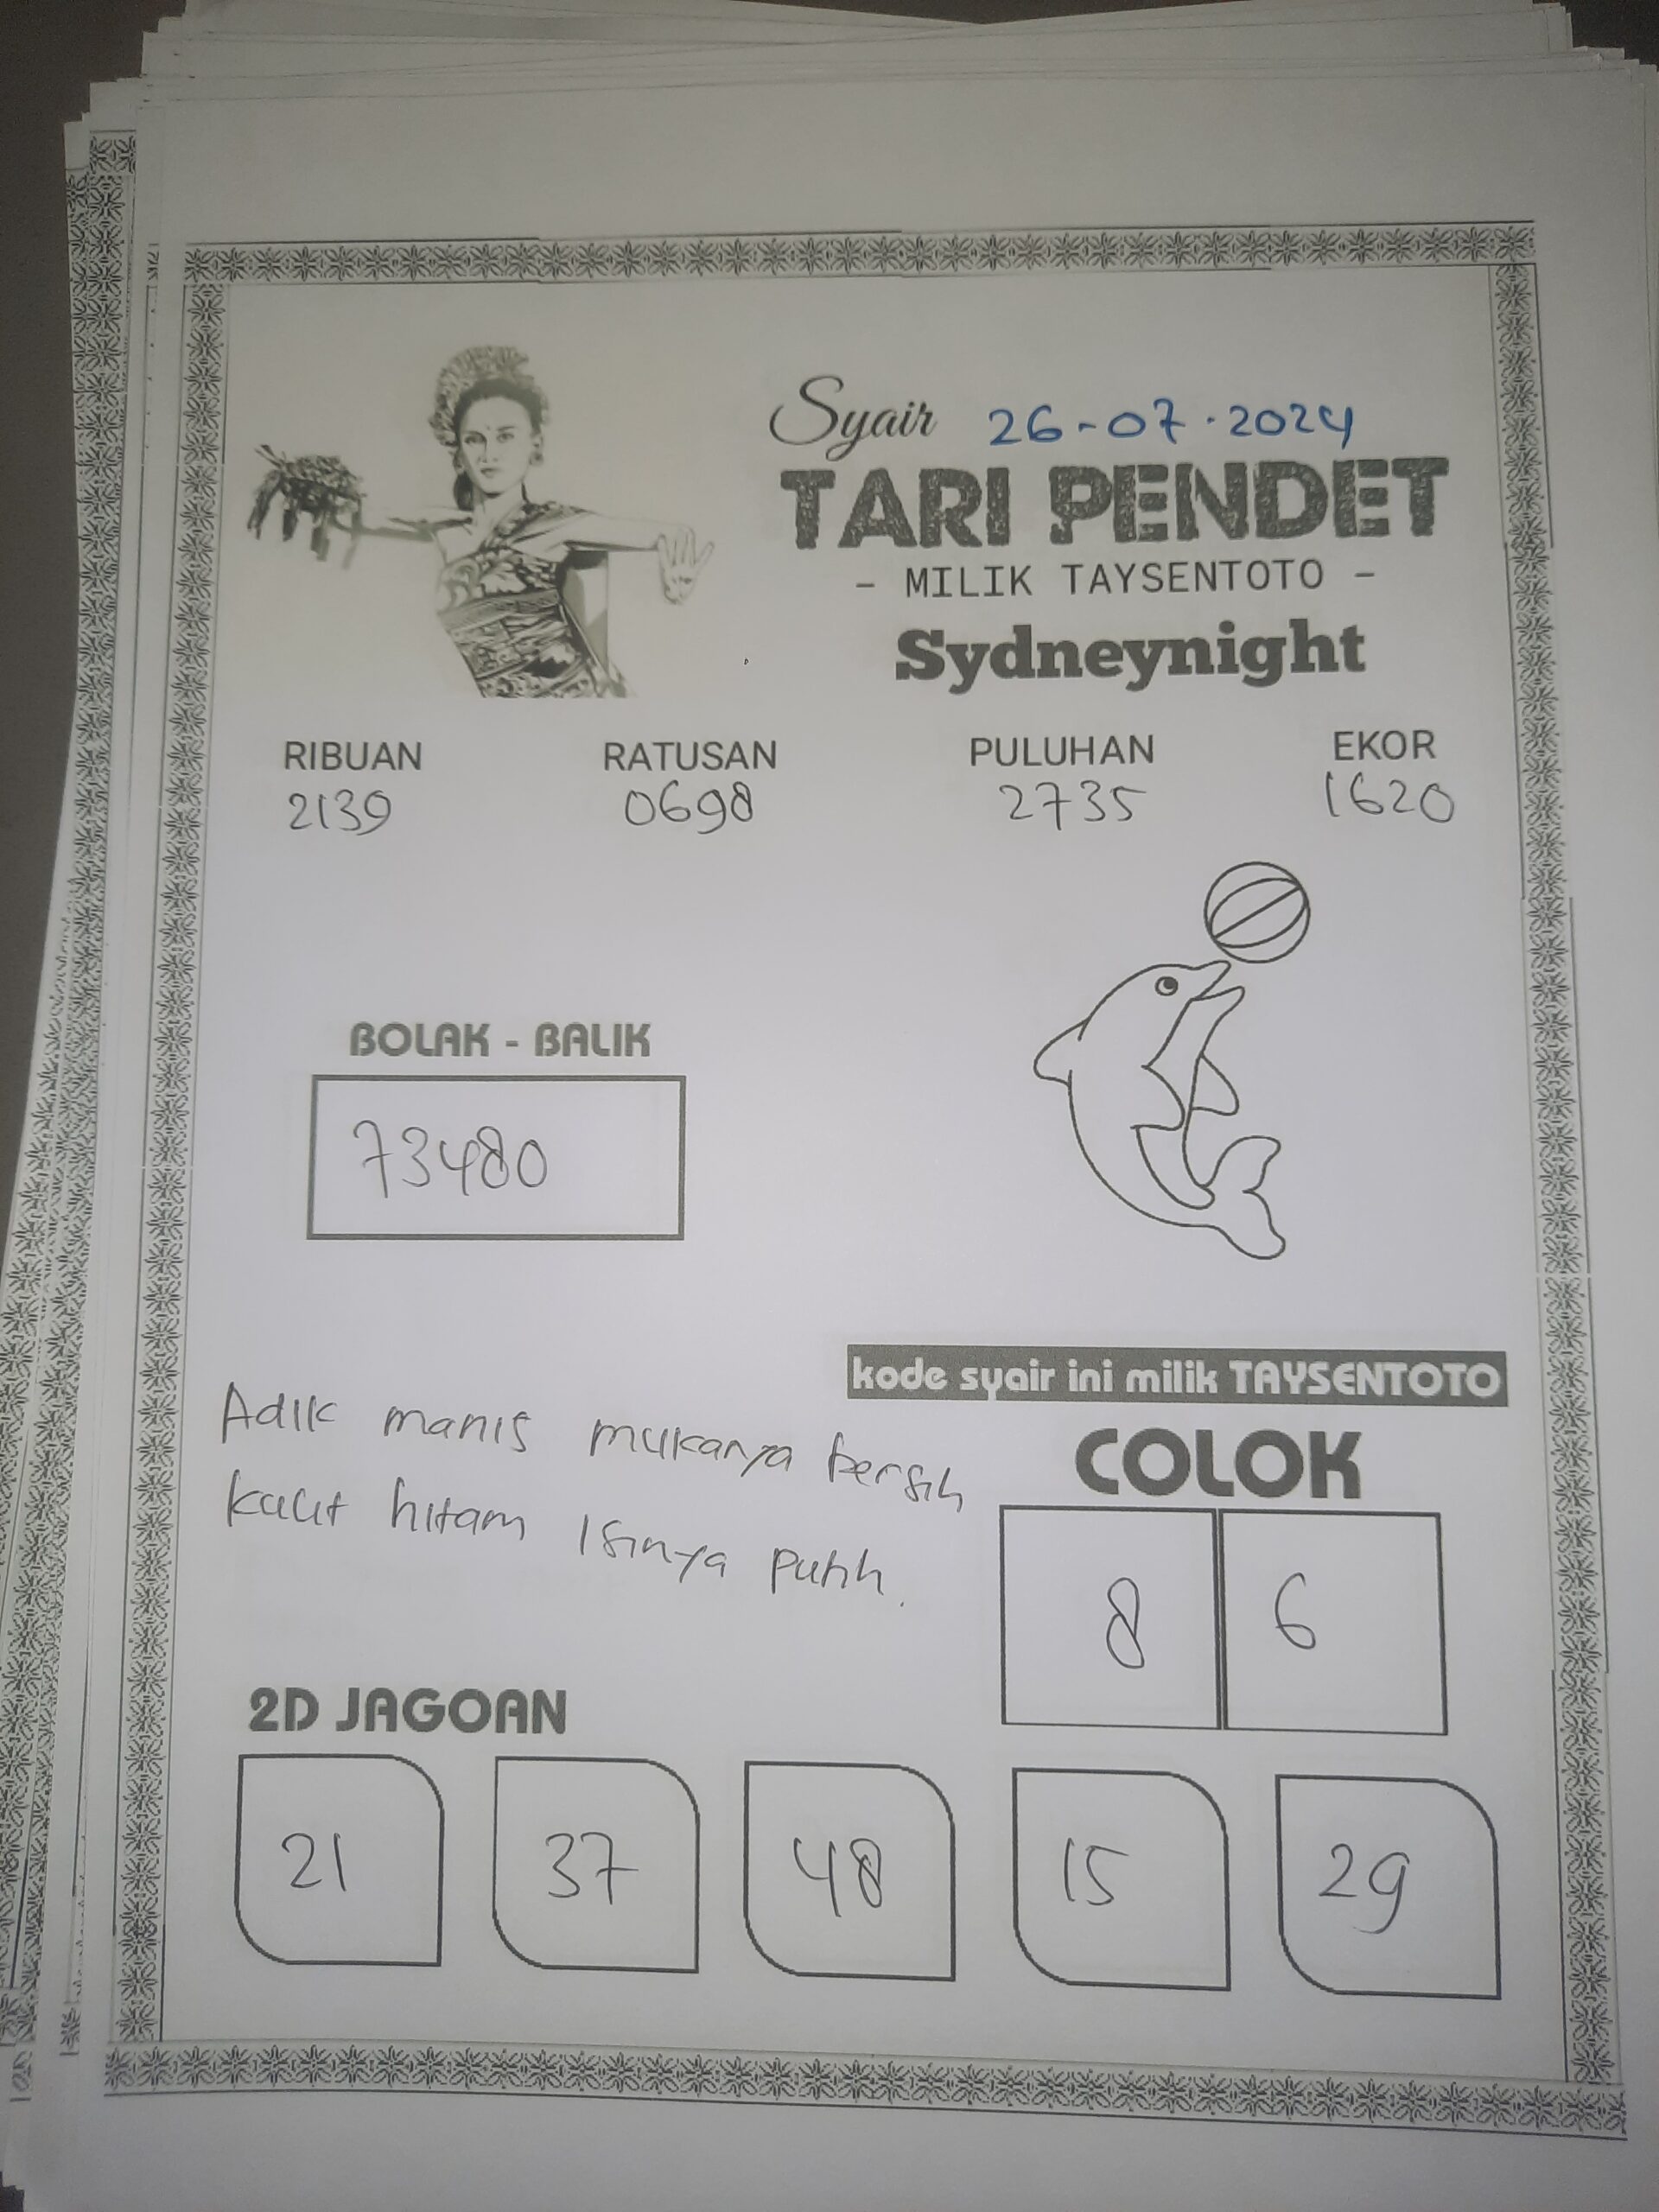 Syair 26-07-2024
TARI PENDET
- MILIK TAYSENTOTO -
Sydneynight
RIBUAN RATUSAN PULUHAN EKOR
2139 0698 2735 1620
BOLAK - BALIK
73480
kode syair ini milik TAYSENTOTO
Adik manis mukanya bersih
kulit hitam isinya putih.
COLOK
8 6
2D JAGOAN
21 37 48 15 29